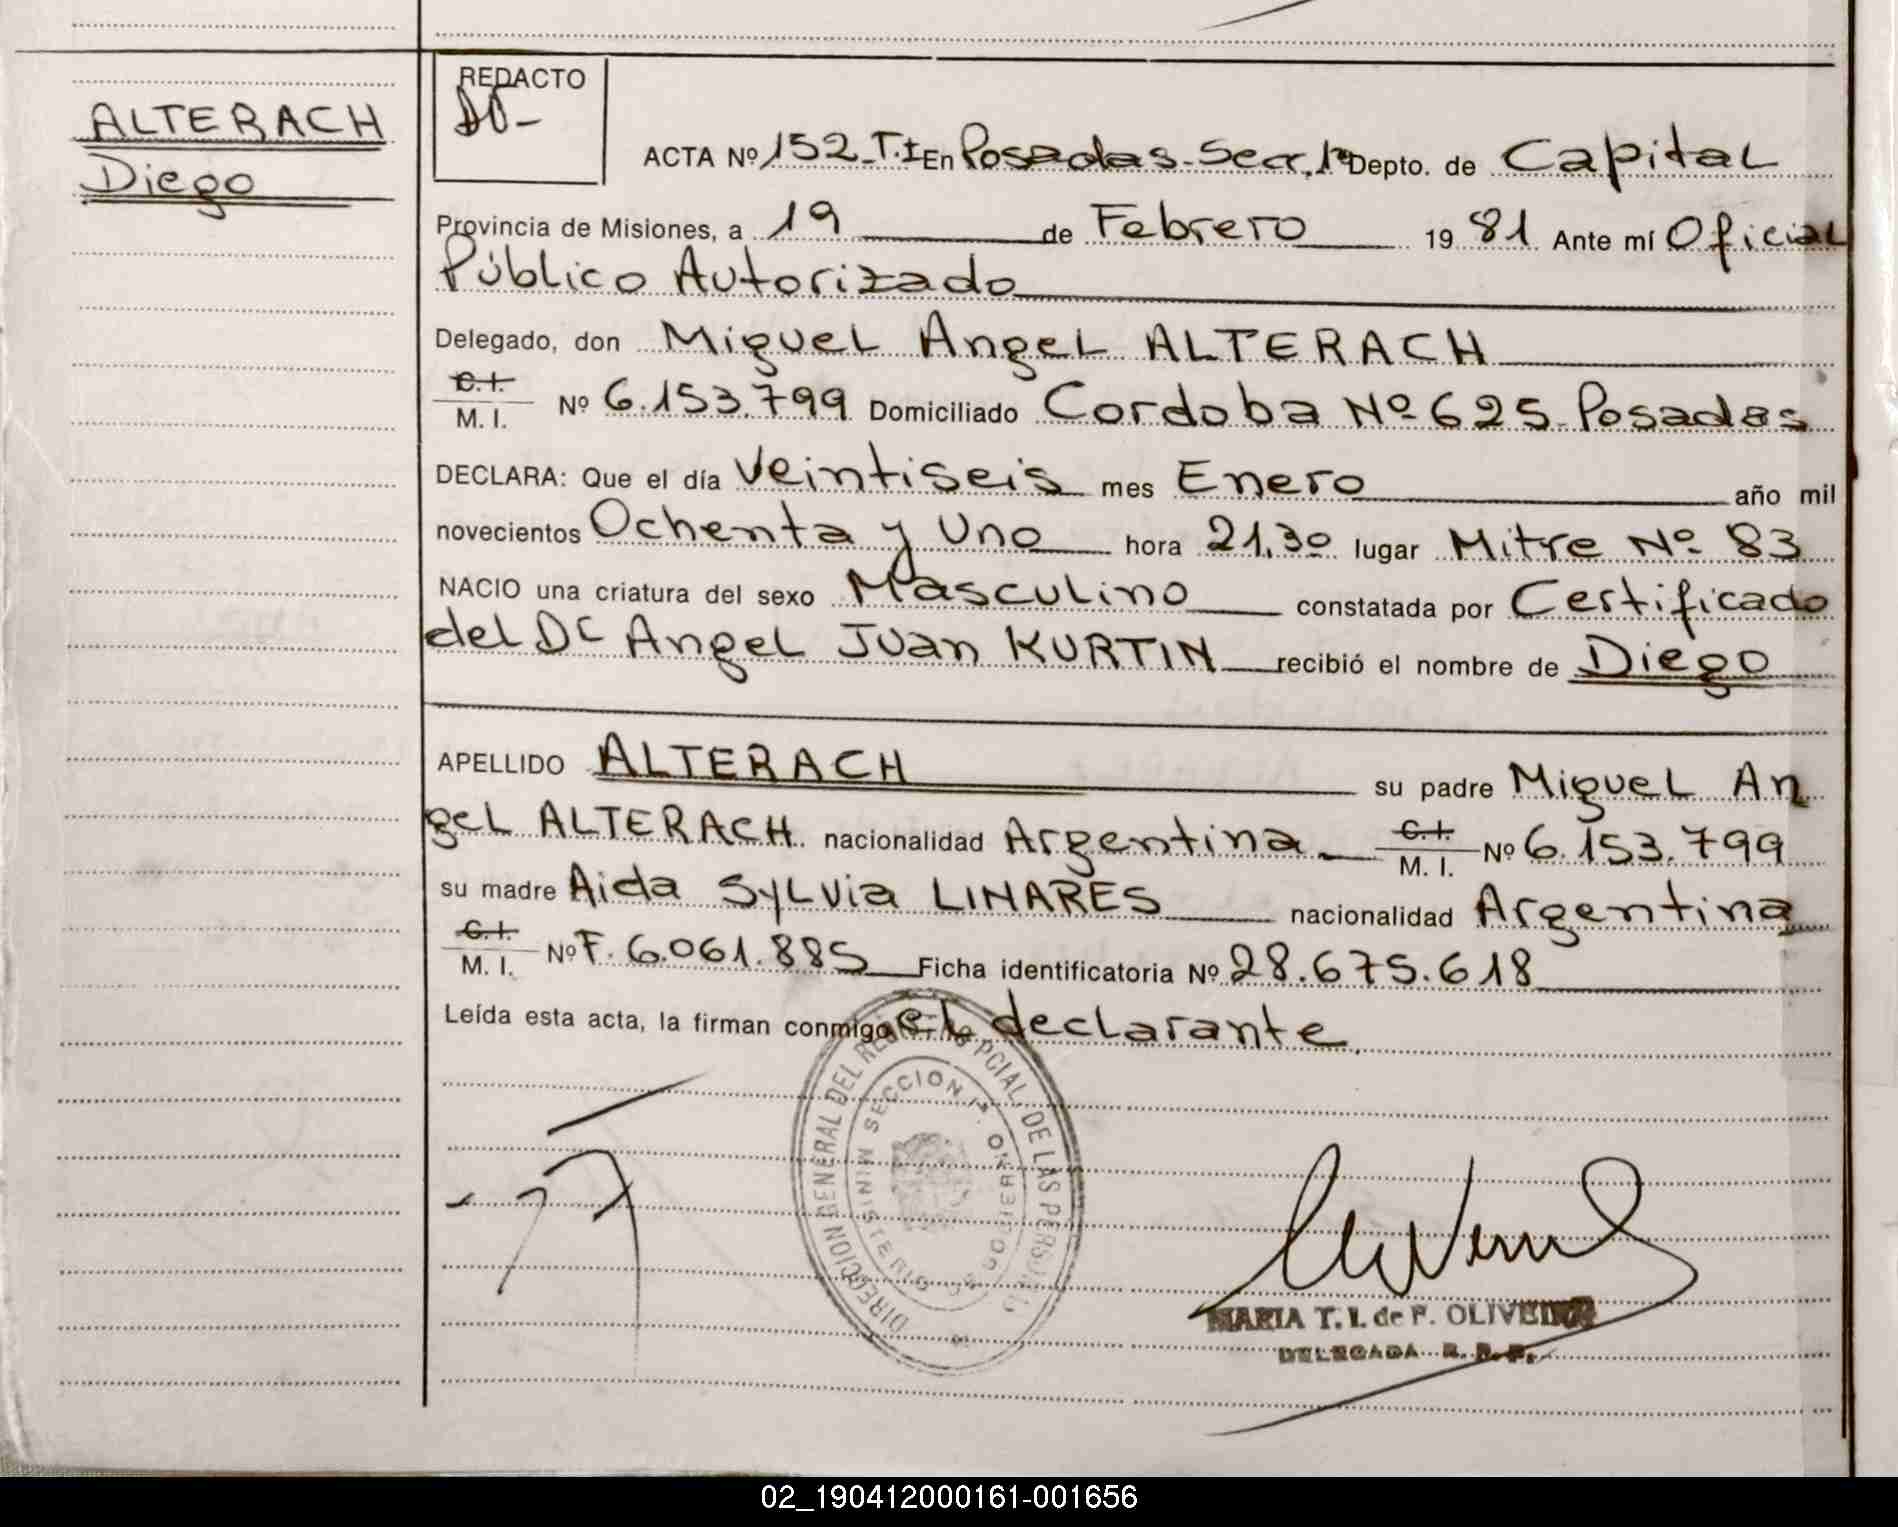 ALTERACH
Diego
REDACTO
ACTA Nº 152-T.I En Posadas-Secc.1ª Depto. de Capital
Provincia de Misiones, a 19 de Febrero 1981 Ante mí Oficial
Público Autorizado
Delegado, don Miguel Angel ALTERACH
C.I. M. I. Nº 6.153.799 Domiciliado Cordoba Nº 625 Posadas
DECLARA: Que el día Veintiseis mes Enero año mil
novecientos Ochenta y Uno hora 21,30 lugar Mitre Nº 83
NACIO una criatura del sexo Masculino constatada por Certificado
del Dr Angel Juan KURTIN recibió el nombre de Diego
APELLIDO ALTERACH su padre Miguel An
gel ALTERACH nacionalidad Argentina C.I. M. I. Nº 6.153.799
su madre Aida Sylvia LINARES nacionalidad Argentina
C.I. M. I. Nº F. 6.061.885 Ficha identificatoria Nº 28.675.618
Leída esta acta, la firman conmigo el declarante.
DIRECCION GENERAL DEL REG. PCIAL. DE LAS PERSONAS
MINISTERIO DE GOBIERNO SECCION 1ª
MARIA T. I. de P. OLIVEIRA
DELEGADA R. P. P.
02_190412000161-001656